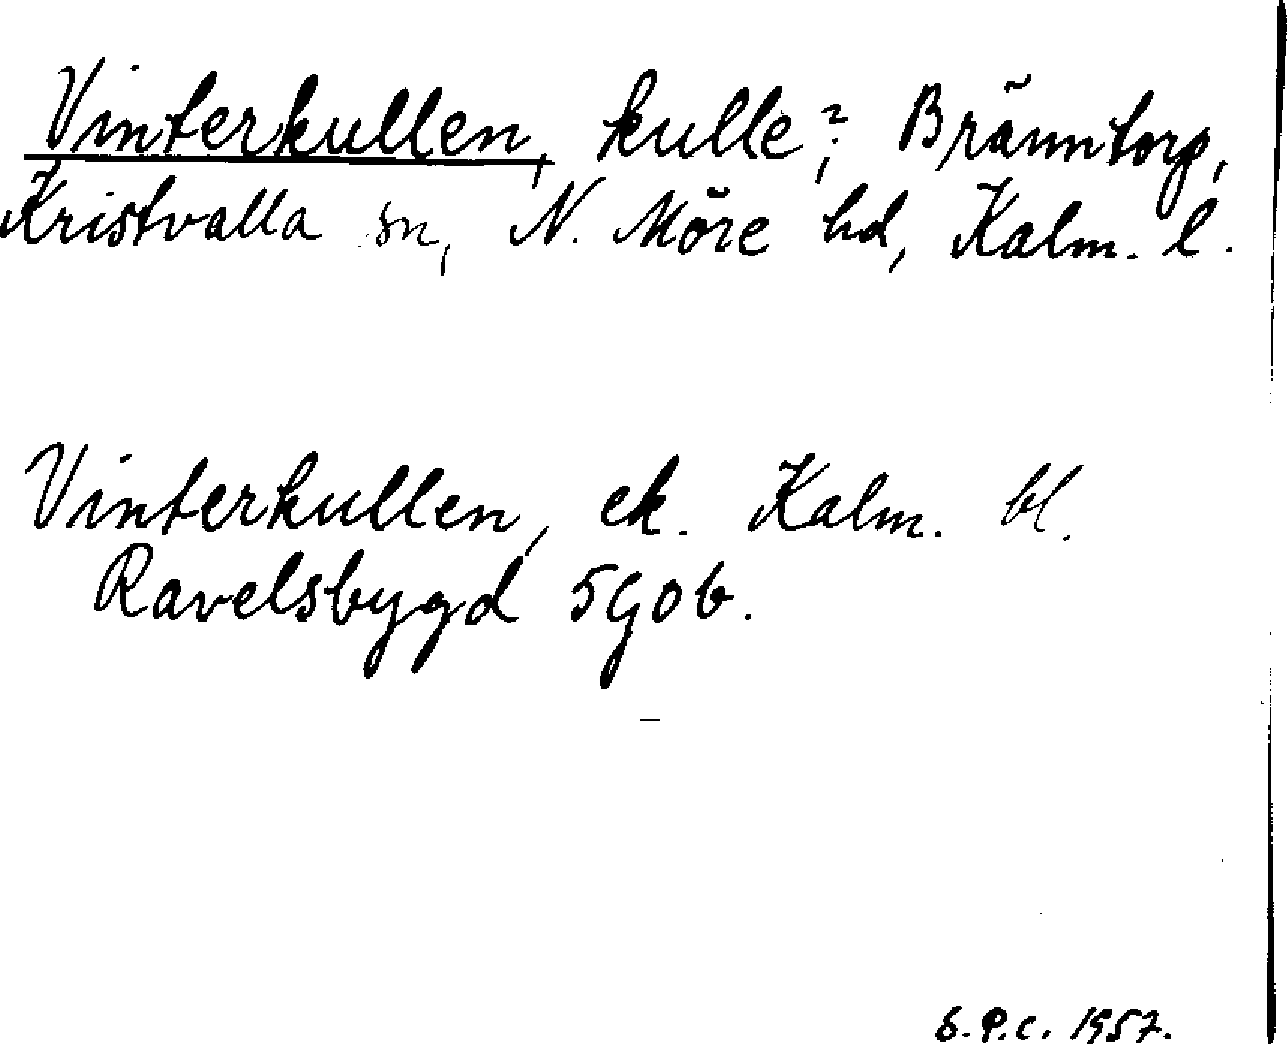 Vinterkullen, kulle?, Bränntorp,
Kristvalla sn, N. Möre hd, Kalm. l.
Vinterkullen, ek. Kalm. bl.
Ravelsbygd 5 g o b.
S.P.C. 1957.